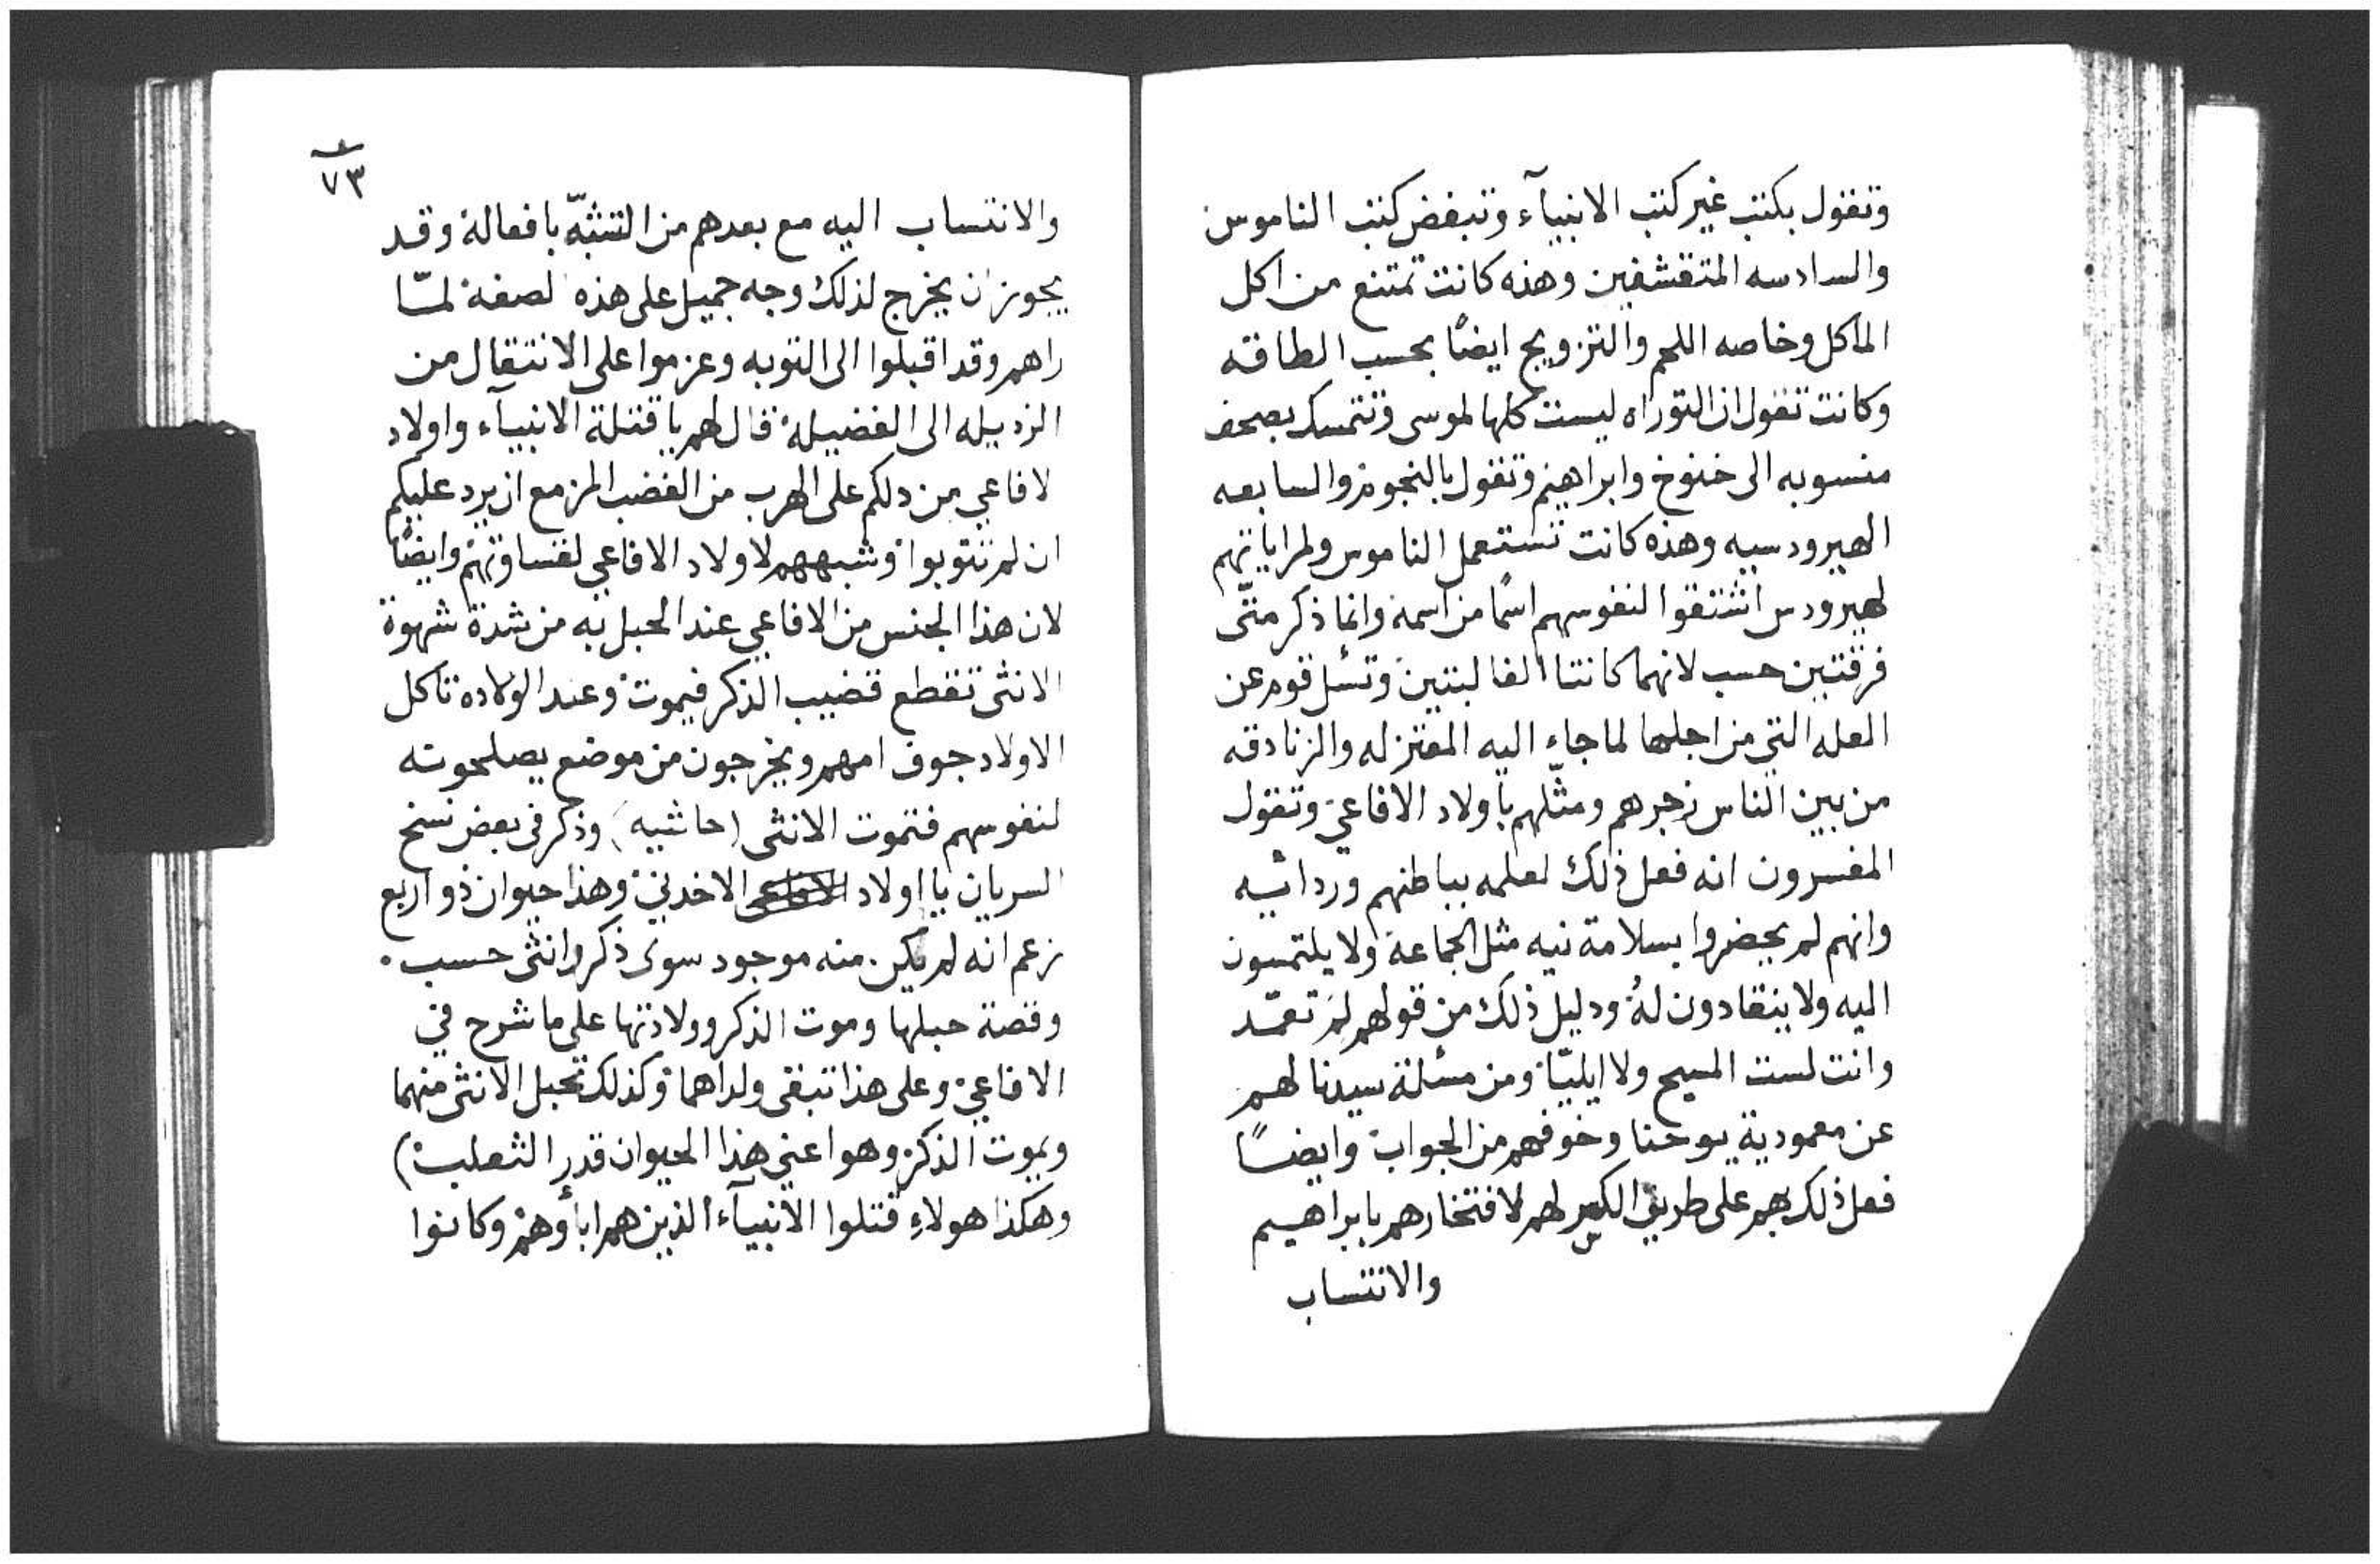 وتقول بكتب غير كتب الانبيآء وتبغض كتب الناموس
والسادسه المتقشفين وهذه كانت تمتنع من اكل
المآكل وخاصه اللحم والتزويج ايضًا بحسب الطاقه
وكانت تقول ان التوراه ليست كلها لموسى وتتمسك بصحف
منسوبه الى خنوخ وابراهيم وتقول بالنجوم والسابعه
الهيرودسيه وهذه كانت تستعمل الناموس ولمراياتهم
لهيرودس اشتقوا لنفوسهم اسمًا من اسمه وانما ذكر متّى
فرقتين حسب لانهما كانتا الغالبتين وتسٔل قوم عن
العله التي من اجلها لما جاء اليه المعتزله والزنادقه
من بين الناس زجرهم ومثّلهم باولاد الافاعي وتقول
المفسرون انه فعل ذلك لعلمه بباطنهم ورداتيه
وانهم لم يحضروا بسلامة نيه مثل الجماعة ولا يلتمسون
اليه ولا ينقادون لهُ ودليل ذلك من قولهم لِمَ تعمّد
وانت لست المسيح ولا ايليّا ومن مسٔلة سيدنا لهم
عن معمودية يوحنا وخوفهم من الجواب وايضًا
فعل ذلك بهم على طريق الكسر لهم لافتخارهم بابراهيم
والانتساب
٧٣
والانتساب اليه مع بعدهم من التشبّه بافعاله وقد
يجوز ان يخرج لذلك وجه جميل على هذه الصفة لمّا
راهم وقد اقبلوا الى التوبه وعزموا على الانتقال من
الرذيله الى الفضيلة قال لهم يا قتلة الانبيآء واولاد
الافاعي من دلكم على الهرب من الغضب المزمع ان يرد عليكم
ان لم تتوبوا وشبههم لاولاد الافاعي لقساوتهم وايضًا
لان هذا الجنس من الافاعي عند الحبل به من شدة شهوة
الانثى تقطع قضيب الذكر فيموت وعند الولاده تاكل
الاولاد جوف امهم ويخرجون من موضع يصلحوته
لنفوسهم فتموت الانثى (حاشيه) وذكر فى بعض نسخ
السريان يا اولاد الافاعي الاخدني وهذا حيوان ذو اربع
زعم انه لم يكن منه موجود سوى ذكر وانثى حسب.
وقصة حبلها وموت الذكر وولادتها على ما شرح في
الافاعي وعلى هذا تبقى ولداهما وكذلك تحبل الانثى منهما
ويموت الذكر وهو اعني هذا الحيوان قدر الثعلب)
وهكذا هولاءِ قتلوا الانبيآء الذين هم اباؤهم وكانوا